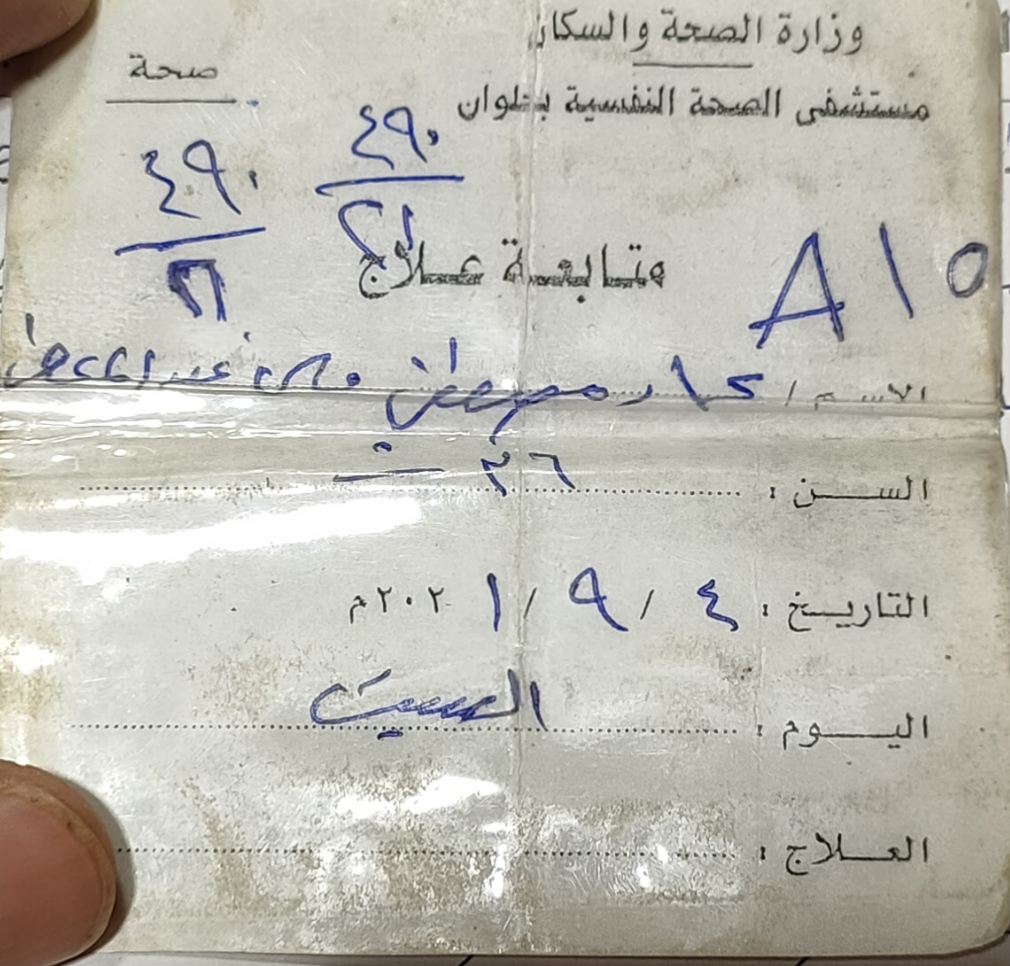 وزارة الصحة والسكان
صحة
مستشفى الصحة النفسية بحلوان
٤٩٠
٤٩٠
٢١
متابعة علاج
A ١٥
الاسم /
السن : ٢٦
التاريخ : ٤ / ٩ / ٢٠٢١م
اليوم : السبت
العلاج :